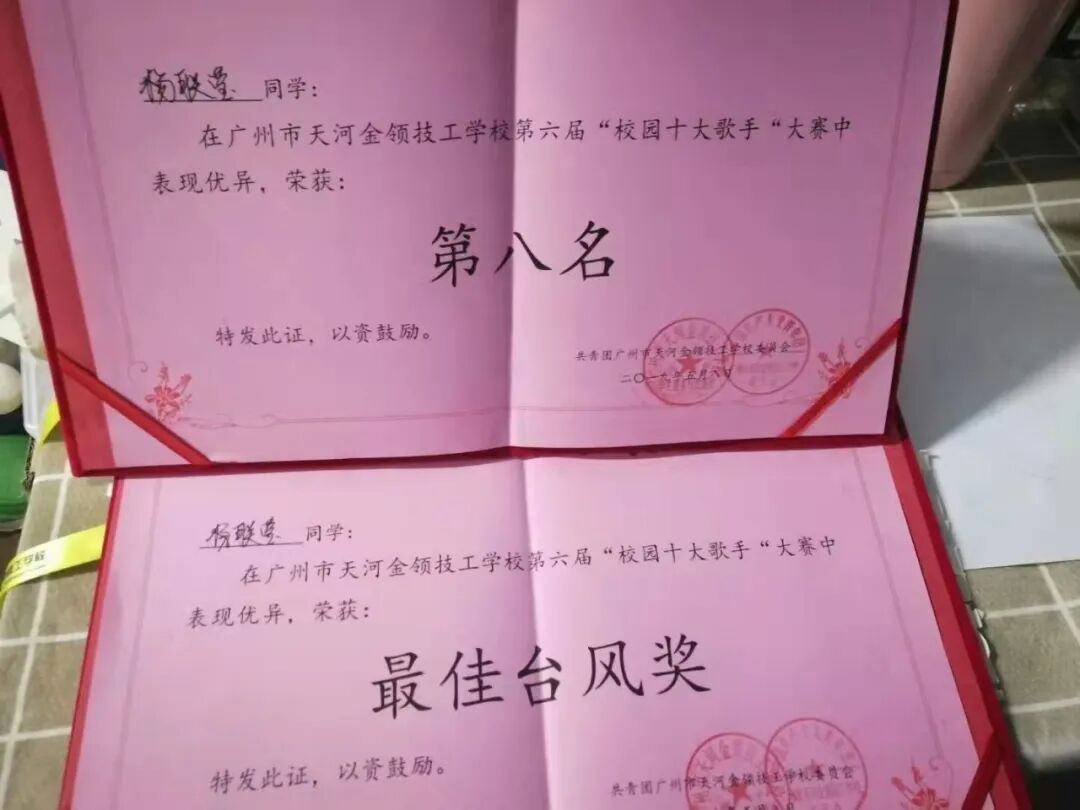 杨联莹 同学：
在广州市天河金领技工学校第六届“校园十大歌手“大赛中
表现优异，荣获：
第八名
特发此证，以资鼓励。
共青团广州市天河金领技工学校委员会
二〇一九年五月八日
杨联莹 同学：
在广州市天河金领技工学校第六届“校园十大歌手“大赛中
表现优异，荣获：
最佳台风奖
特发此证，以资鼓励。
共青团广州市天河金领技工学校委员会